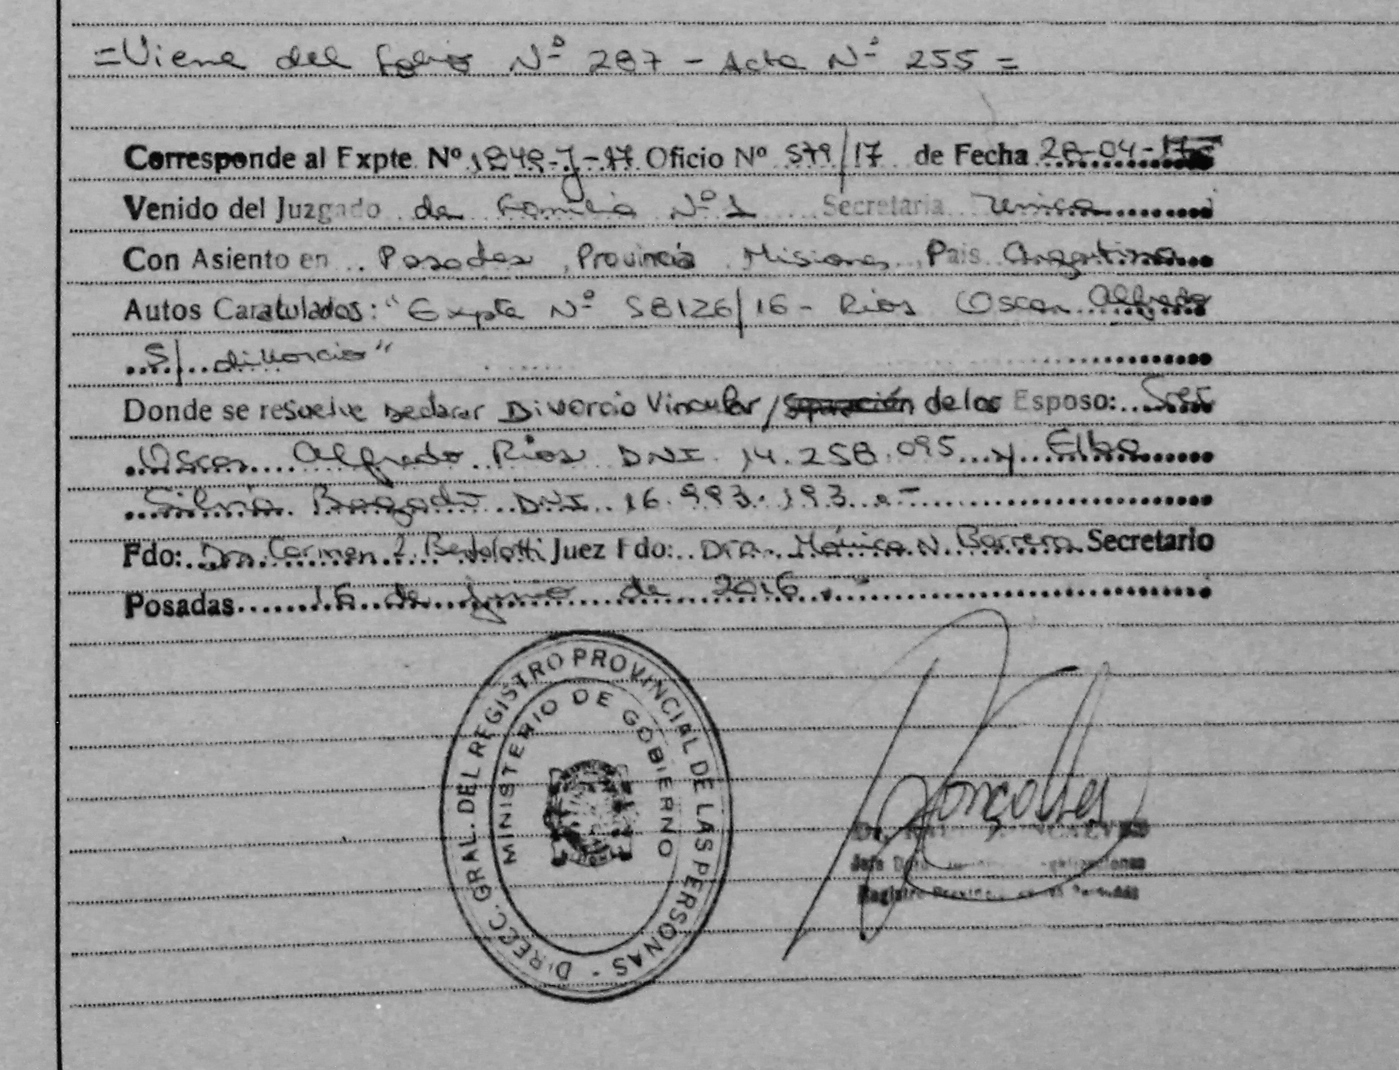 =Viene del folio Nº 287 - Acta Nº 255 =
Corresponde al Expte. Nº 1848-J-17 Oficio Nº 579/17 de Fecha 28-04-17
Venido del Juzgado de Familia Nº 1 Secretaria Unica
Con Asiento en Posadas, Provincia Misiones, Pais Argentina
Autos Caratulados: "Expte Nº 58126/16 - Rios Oscar Alfredo
S/ divorcio"
Donde se resuelve Declarar Divorcio Vincular/Separación de los Esposo: Sres
Oscar Alfredo Rios DNI 14.258.095 y Elba
Silvia Bogado DNI 16.993.193.-
Fdo: Dra. Carmen I. Bertolotti Juez Fdo: Dra. Mónica N. Barrera Secretario
Posadas 16 de Junio de 2016.
DIREZC. GRAL. DEL REGISTRO PROVINCIAL DE LAS PERSONAS -
MINISTERIO DE GOBIERNO
Jefe
Registro